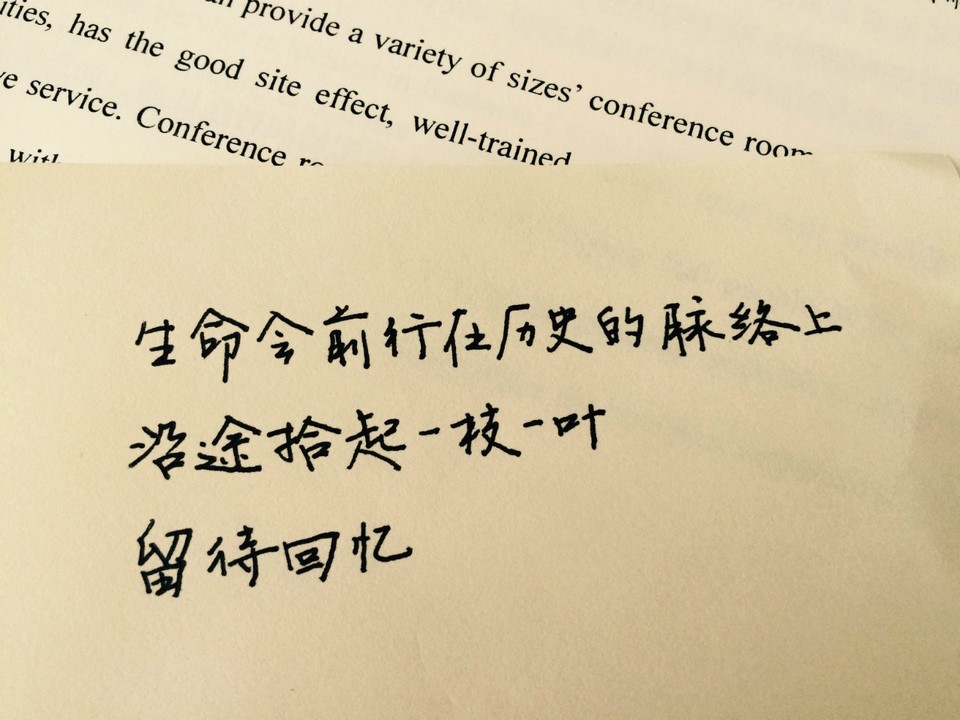 provide a variety of sizes' conference room
ities, has the good site effect, well-trained
ve service. Conference
with
生命会前行在历史的脉络上
沿途拾起一枝一叶
留待回忆